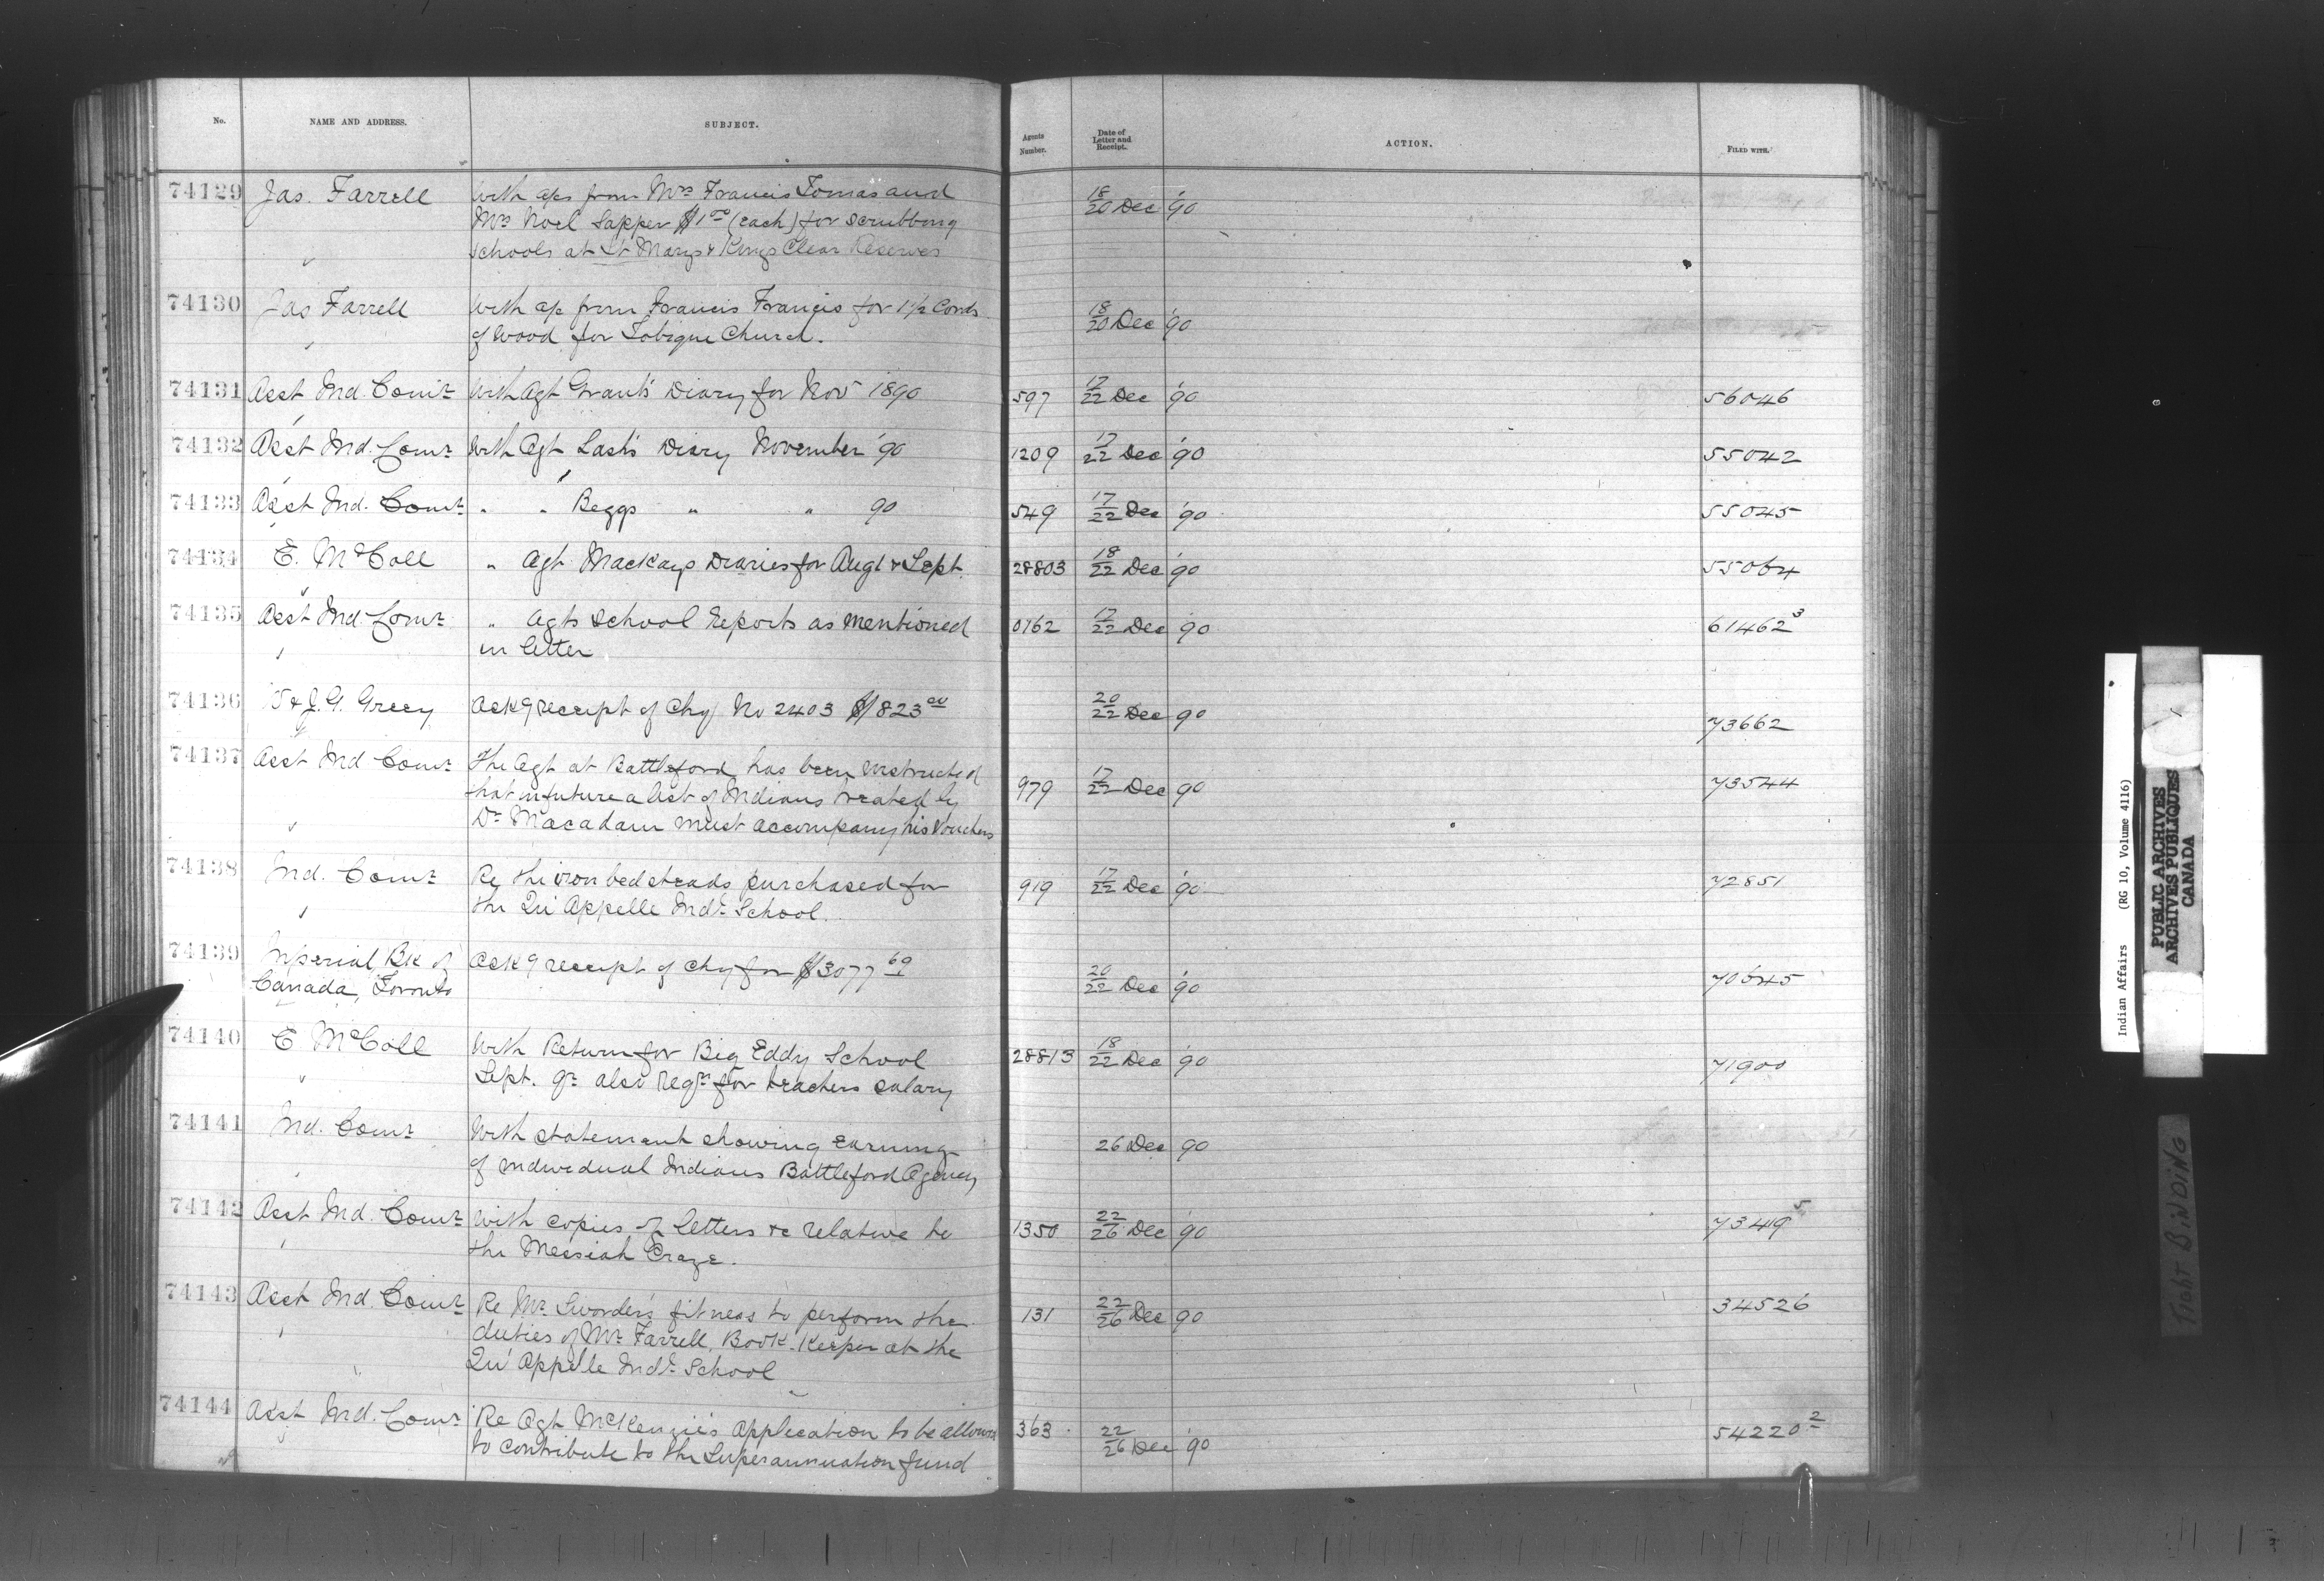 No. NAME AND ADDRESS. SUBJECT. Agents Number. Date of Letter and Receipt. ACTION. FILED WITH.
74129 Jas. Farrell With a/cs from Mrs Francis Tomas and 18/20 Dec '90
Mrs Noel Sapper $1 00 (each) for scrubbing
schools at St Marys & Kings Clear Reserves
74130 Jas Farrell With a/c from Francis Francis for 1 1/2 Cords 18/20 Dec '90
of wood for Tobique Church.
74131 Asst Ind. Comr With Agt Grant's Diary for Nov 1890 597 17/22 Dec '90 56046
74132 Asst Ind. Comr With Agt Lash's Diary November '90 1209 17/22 Dec '90 55042
74133 Asst Ind. Comr " " Beggs " " 90 549 17/22 Dec '90 55045
74134 E. McColl " Agt Mackays Diaries for Augt & Sept. 28803 18/22 Dec '90 55064
74135 Asst Ind Comr " Agts School Reports as mentioned 0762 17/22 Dec '90 61462 3
in letter
74136 & J.G. Greey Ackg receipt of Chq No 2403 $1823 00 20/22 Dec 90 73662
74137 Asst Ind Comr The Agt at Battleford has been instructed 979 17/22 Dec 90 73544
that in future a list of Indians treated by
Dr Macadam must accompany his Vouchers
74138 Ind. Comr Re the iron bedsteads purchased for 919 17/22 Dec '90 72851
the Qu'Appelle Indl School.
74139 Imperial Bk of Ackg receipt of chq for $3077 69 20/22 Dec '90 70645
Canada, Toronto
74140 E McColl With Return for Big Eddy School 28813 18/22 Dec '90 71900
Sept. qr also reqn for teachers salary
74141 Ind. Comr With statement showing earnings 26 Dec 90
of individual Indians Battleford Agency
74142 Asst Ind. Comr With copies of letters &c relative to 1350 22/26 Dec '90 73419 5
the Messiah Craze.
74143 Asst Ind. Comr Re Mr Sworder's fitness to perform the 131 22/26 Dec 90 34526
duties of Mr Farrell, Book-Keeper at the
Qu'Appelle Indl School
74144 Asst Ind. Comr Re Agt McKenzie's application to be allowed 363 22/26 Dec '90 54220 2
to contribute to the Superannuation fund
Indian Affairs (RG 10, Volume 4116)
PUBLIC ARCHIVES
ARCHIVES PUBLIQUES
CANADA
TIGHT BINDING